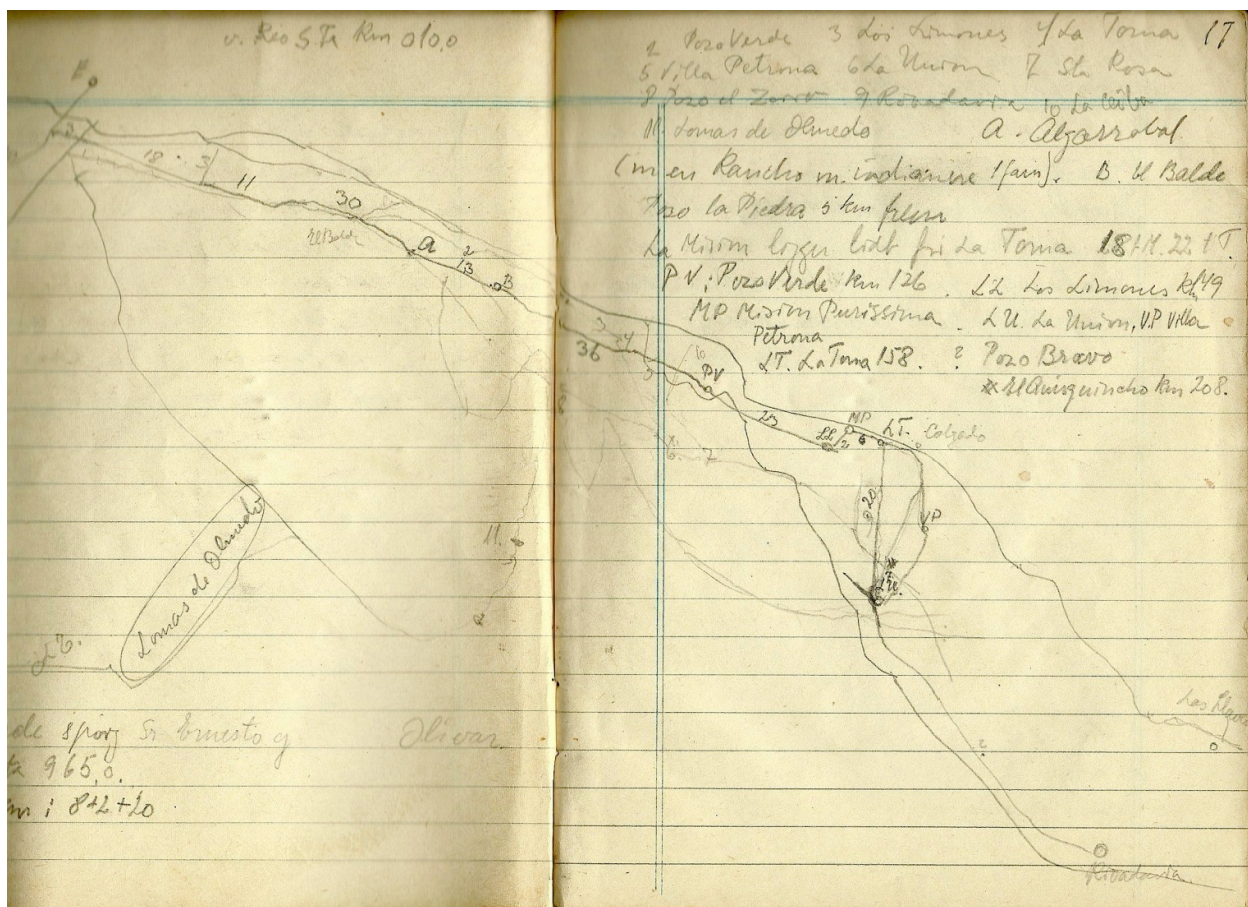 v. Rio S. Fe Km 010,0
E
18
11
30
El Balde
A
2
13
B
11.
Lomas de Olmedo
de spörj Sr Ernesto g Olivar
965,0.
m : 8+2+20
17
2 Pozo Verde 3 Los Limones 4 La Toma
5 Villa Petrona 6 La Union 7 Sta Rosa
8 Pozo el Zorro 9 Rivadavia 10 La Ceiba
11. Lomas de Olmedo A. Algarrobal
(m en Rancho m. indianere 1 fam). B. El Balde
Pozo la Piedra 5 km frem
La Mision ligger lidt før La Toma 18
P V: Pozo Verde Km 126. LL Los Limones Km 149
MP Mision Purissima. LU. La Union, V.P Villa
Petrona
LT. La Toma 158. ? Pozo Bravo
* El Quirquincho Km 208.
3
4
36
10
PV
23
LL
2
MP
6
LT.
Colgado
8
6. 7
20
VP
LU.
?
Rivadavia